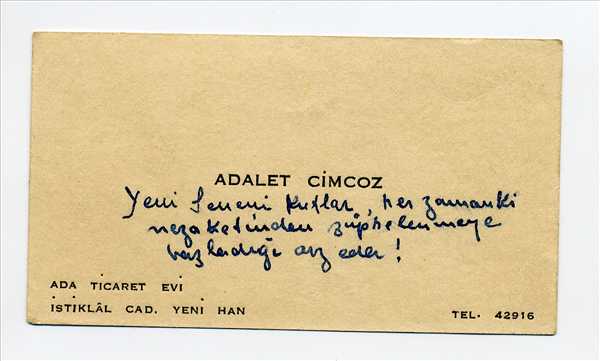 ADALET CİMCOZ
Yeni Seneni kutlar, her zamanki
nezaketinden şüphelenmeye
başladığı arz eder!
ADA TİCARET EVİ
İSTİKLÂL CAD. YENİ HAN
TEL. 42916